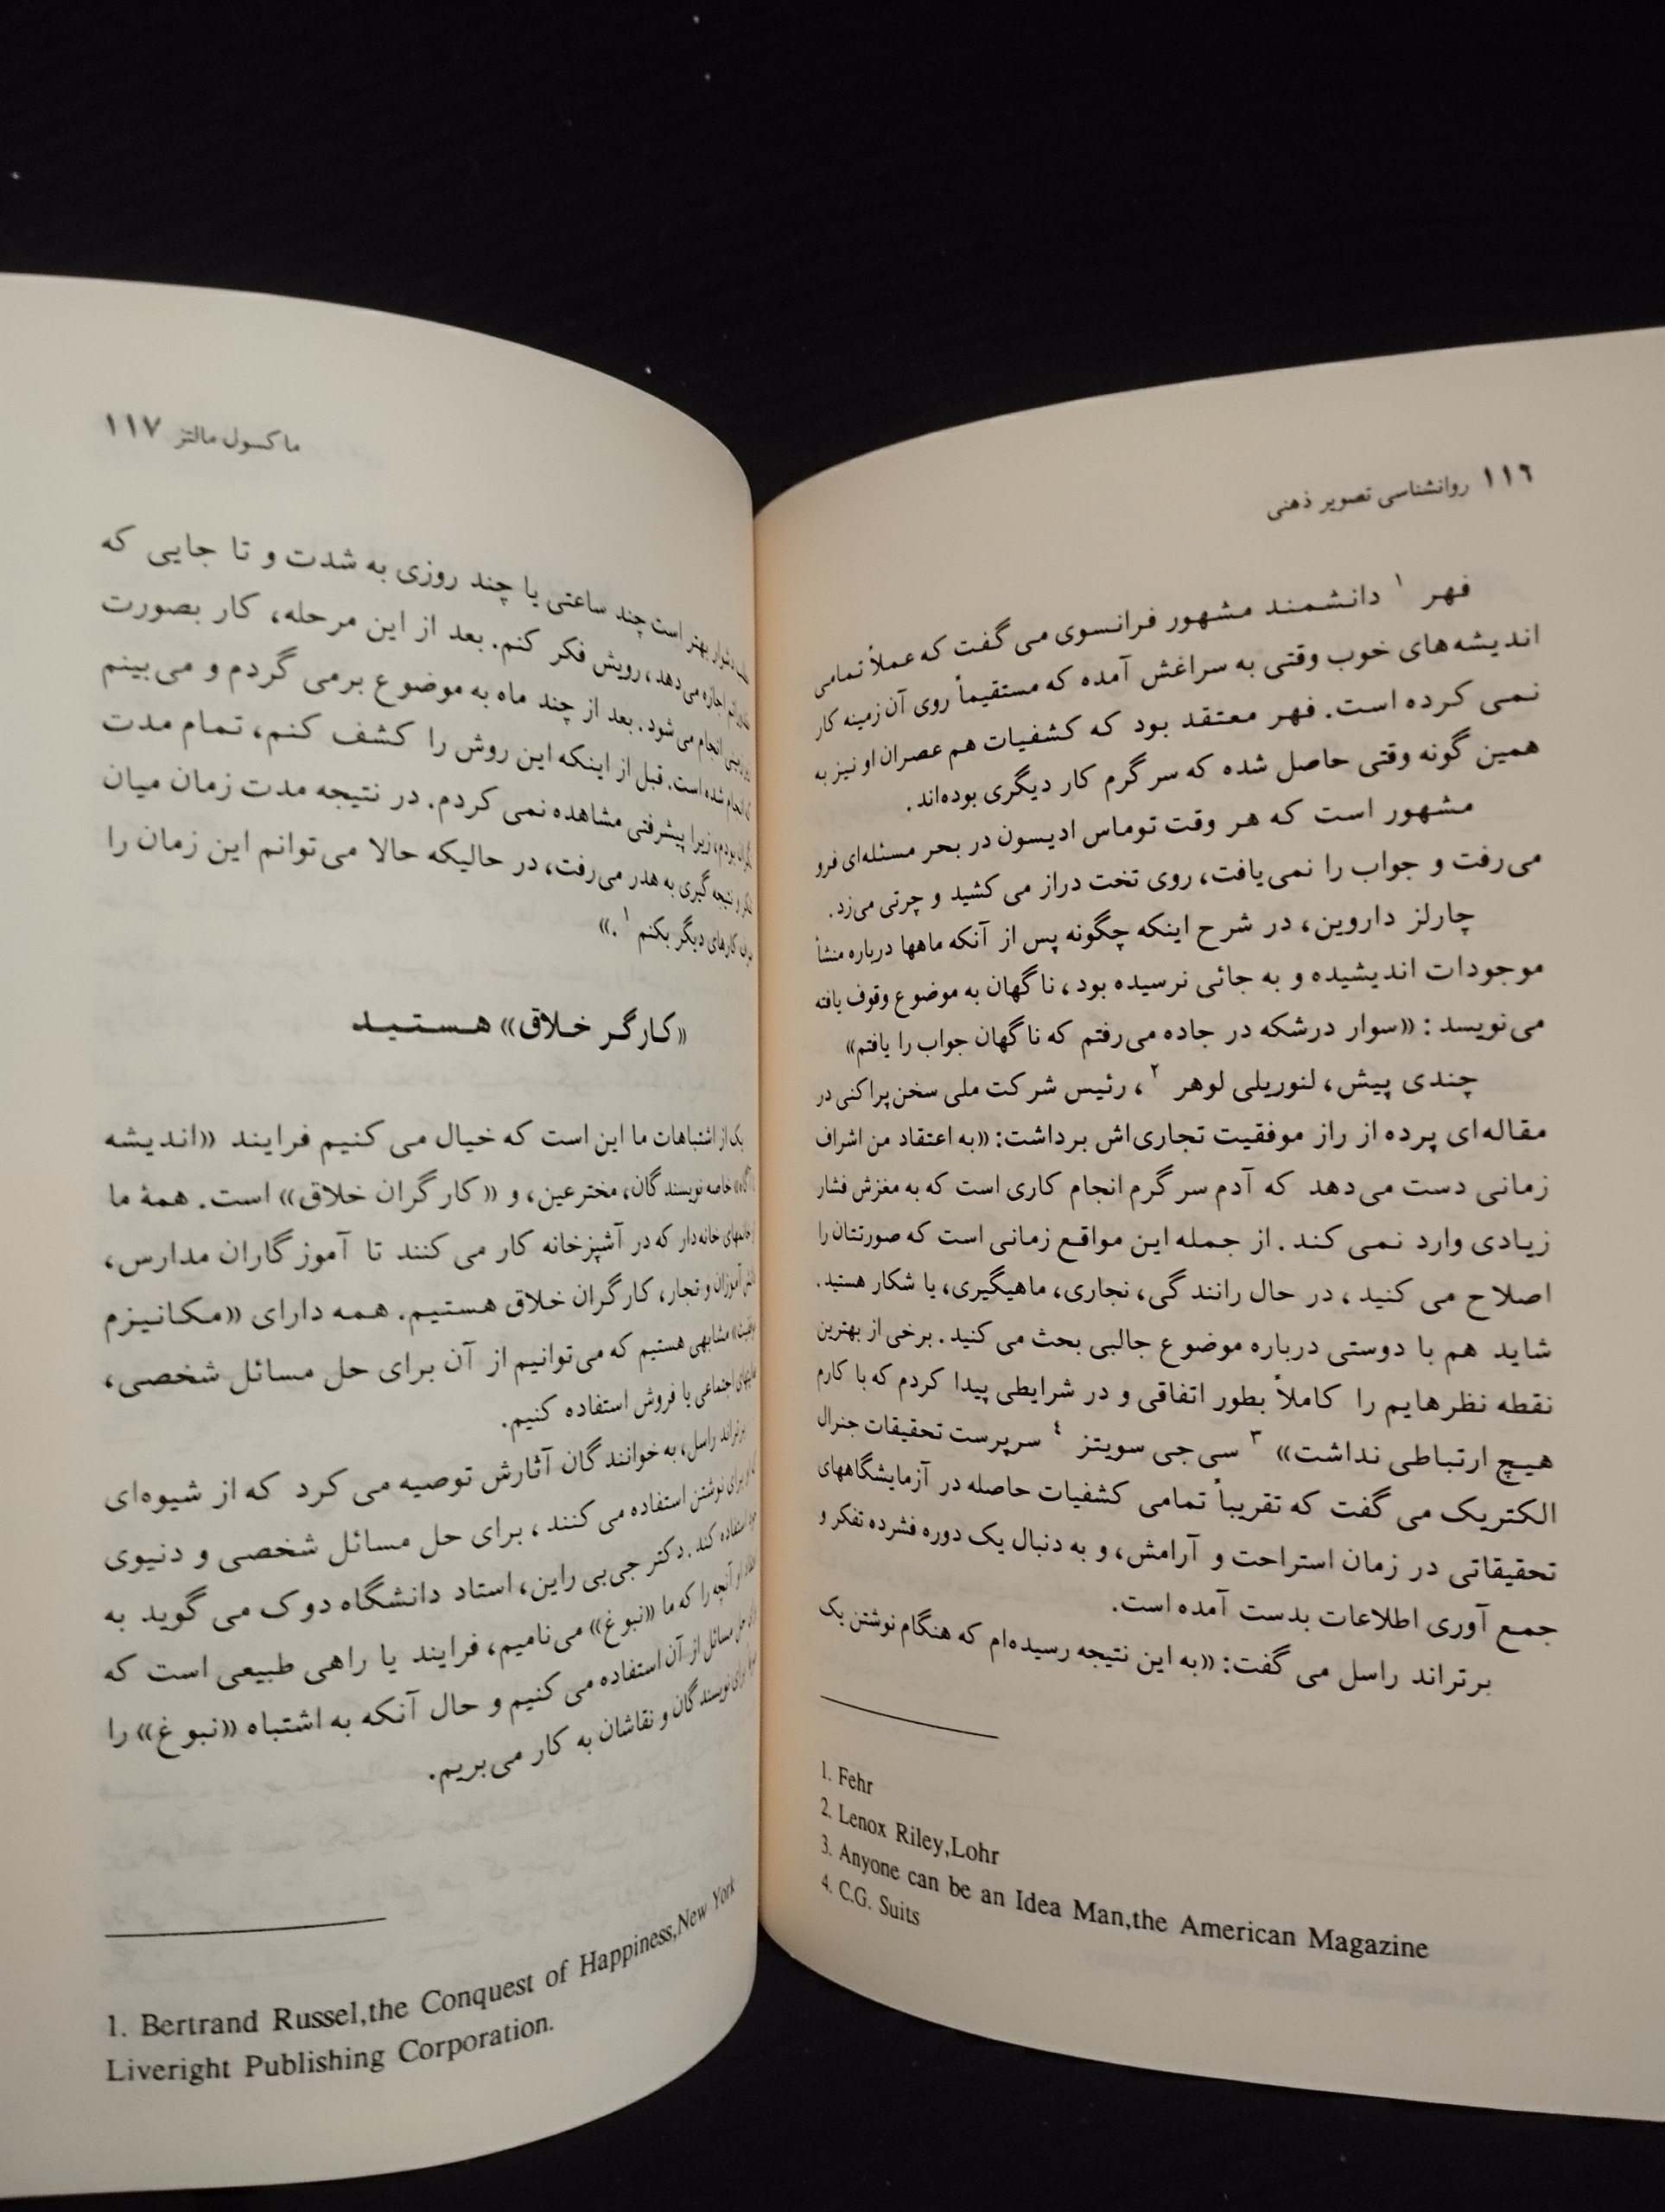 ١١٦ روانشناسی تصویر ذهنی
فهر ١ دانشمند مشهور فرانسوی می گفت که عملاً تمامی
اندیشه‌های خوب وقتی به سراغش آمده که مستقیماً روی آن زمینه کار
نمی کرده است. فهر معتقد بود که کشفیات هم عصران او نیز به
همین گونه وقتی حاصل شده که سر گرم کار دیگری بوده‌اند.
مشهور است که هر وقت توماس ادیسون در بحر مسئله‌ای فرو
می‌رفت و جواب را نمی‌یافت، روی تخت دراز می کشید و چرتی می‌زد.
چارلز داروین، در شرح اینکه چگونه پس از آنکه ماهها درباره منشأ
موجودات اندیشیده و به جائی نرسیده بود، ناگهان به موضوع وقوف یافته
می‌نویسد: «سوار درشکه در جاده می‌رفتم که ناگهان جواب را یافتم»
چندی پیش، لنوریلی لوهر ٢، رئیس شرکت ملی سخن‌پراکنی در
مقاله‌ای پرده از راز موفقیت تجاری‌اش برداشت: «به اعتقاد من اشراف
زمانی دست می‌دهد که آدم سر گرم انجام کاری است که به مغزش فشار
زیادی وارد نمی کند. از جمله این مواقع زمانی است که صورتتان را
اصلاح می کنید، در حال رانندگی، نجاری، ماهیگیری، یا شکار هستید.
شاید هم با دوستی درباره موضوع جالبی بحث می کنید. برخی از بهترین
نقطه نظرهایم را کاملاً بطور اتفاقی و در شرایطی پیدا کردم که با کارم
هیچ ارتباطی نداشت» ٣ سی‌جی سویتز ٤ سرپرست تحقیقات جنرال
الکتریک می گفت که تقریباً تمامی کشفیات حاصله در آزمایشگاههای
تحقیقاتی در زمان استراحت و آرامش، و به دنبال یک دوره فشرده تفکر و
جمع آوری اطلاعات بدست آمده است.
برتراند راسل می گفت: «به این نتیجه رسیده‌ام که هنگام نوشتن یک
1. Fehr
2. Lenox Riley,Lohr
3. Anyone can be an Idea Man,the American Magazine
4. C.G. Suits
ماکسول مالتز ١١٧
دشوار بهتر است چند ساعتی یا چند روزی به شدت و تا جایی که
اجازه می‌دهد، رویش فکر کنم. بعد از این مرحله، کار بصورت
انجام می‌شود. بعد از چند ماه به موضوع برمی گردم و می‌بینم
انجام شده است. قبل از اینکه این روش را کشف کنم، تمام مدت
نگران بودم، زیرا پیشرفتی مشاهده نمی کردم. در نتیجه مدت زمان میان
و نتیجه گیری به هدر می‌رفت، در حالیکه حالا می‌توانم این زمان را
کارهای دیگر بکنم ١.»
«کارگر خلاق» هستید
یک از اشتباهات ما این است که خیال می کنیم فرایند «اندیشه
خاصه نویسندگان، مخترعین، و «کارگران خلاق» است. همهٔ ما
از خانمهای خانه‌دار که در آشپزخانه کار می کنند تا آموزگاران مدارس،
دانش آموزان و تجار، کارگران خلاق هستیم. همه دارای «مکانیزم
موفقیت» مشابهی هستیم که می‌توانیم از آن برای حل مسائل شخصی،
اجتماعی یا فروش استفاده کنیم.
برتراند راسل، به خوانندگان آثارش توصیه می کرد که از شیوه‌ای
برای نوشتن استفاده می کنند، برای حل مسائل شخصی و دنیوی
استفاده کند. دکتر جی‌بی راین، استاد دانشگاه دوک می گوید به
اعتقاد او آنچه را که ما «نبوغ» می‌نامیم، فرایند یا راهی طبیعی است که
برای حل مسائل از آن استفاده می کنیم و حال آنکه به اشتباه «نبوغ» را
برای نویسندگان و نقاشان به کار می‌بریم.
1. Bertrand Russel,the Conquest of Happiness,New York
Liveright Publishing Corporation.